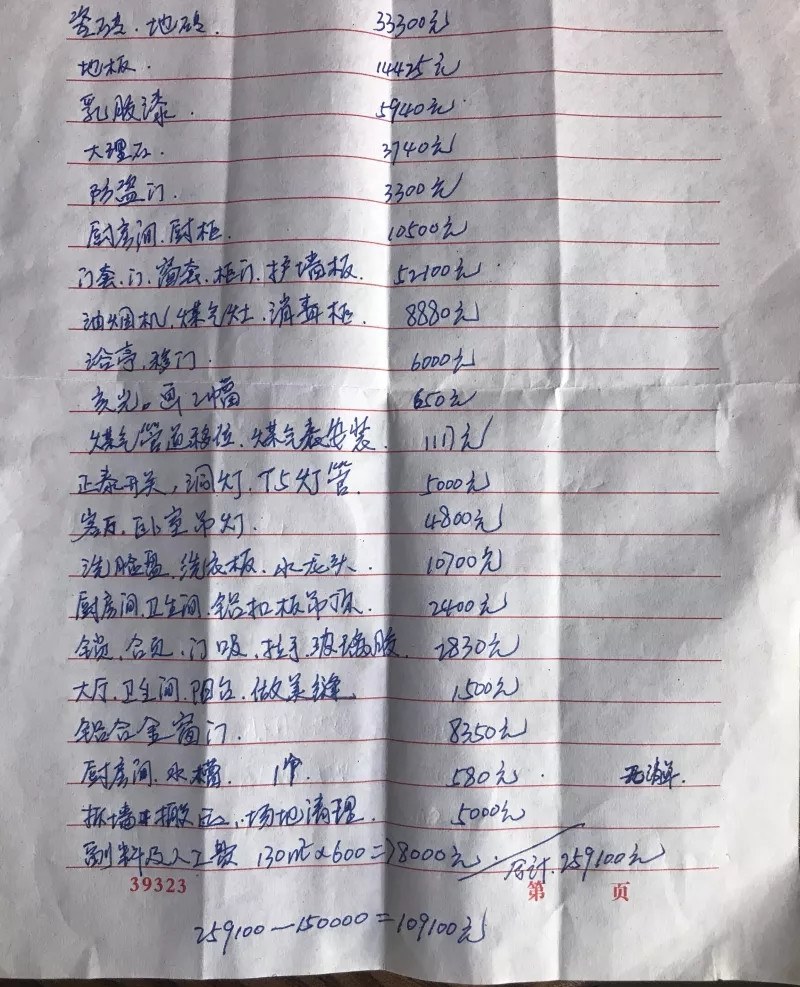 瓷砖.地砖. 33300元
地板. 14425元
乳胶漆. 5940元
大理石. 3740元
防盗门. 3300元
厨房间.厨柜. 10500元
门套.门.窗套.柜门.护墙板. 52100元
油烟机.煤气灶.消毒柜. 8880元
浴亭.移门. 6000元
画2幅 650元
煤气管道移位.煤气表安装. 1117元
正泰开关,洞灯.T5灯管. 5000元
客厅.卧室吊灯. 4800元
洗脸盘.洗衣板.水龙头. 10700元
厨房间.卫生间.铝扣板吊顶. 2400元
锁.合页.门吸.拉手.玻璃胶. 2830元
大厅.卫生间.阳台.做美缝. 1500元
铝合金窗门. 8350元
厨房间.水槽. 1个. 580元. 清单.
拆墙 搬运.场地清理. 5000元
副料及人工款 130m²×600=78000元. 合计.259100元
39323 第 页
259100-150000=109100元